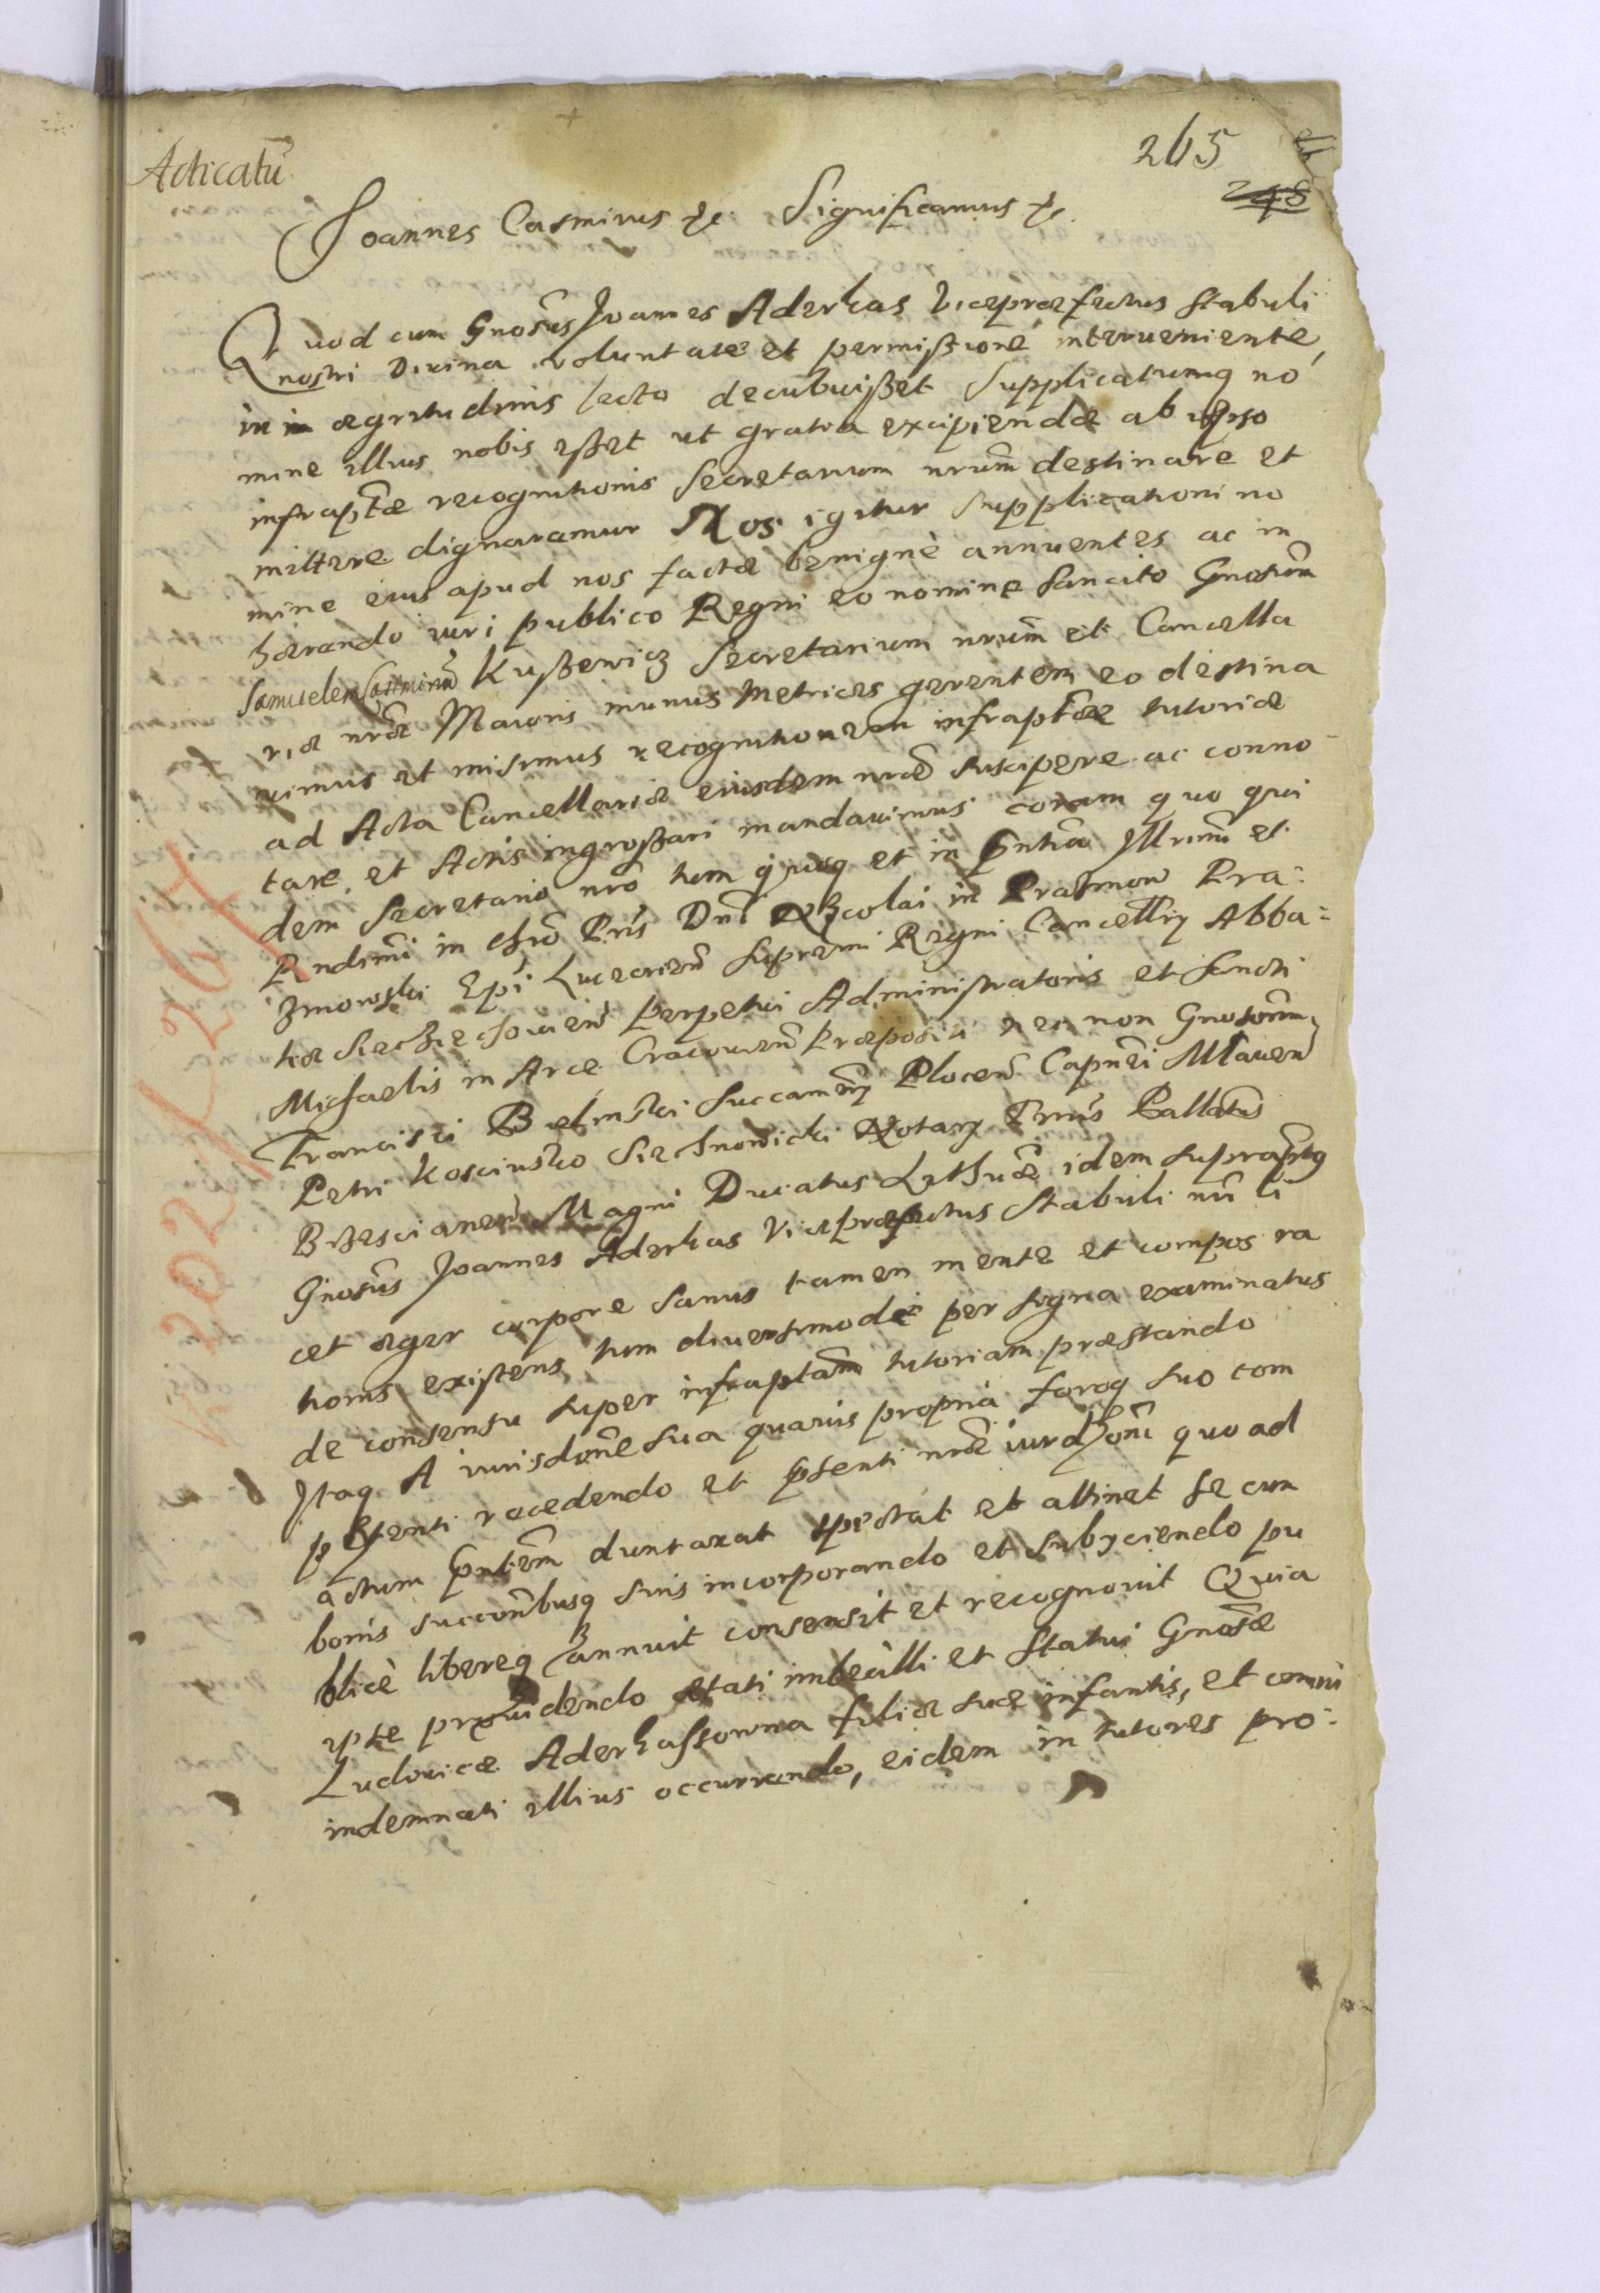 265
Acticatũ
248
Joannes Casmirus &c. Significamus &c.
Quod cum Gnosus Joannes Aderkas Viceprefectus Stabuli
nostri Divina voluntate et permißione interueniente,
in in ægritudinis lecto decubuißet Supplicatumq no
mine illius nobis eßet ut gratia excipiendæ ab ipso
infraptæ recognitionis Secretarium nrum destinare et
mittere dignaremur Nos igitur supplicationi no
mine eius apud nos factæ benignè annuentes ac in
hærendo iuri publico Regni eo nomine sancito Gnosum
Samuelem Casimirũ Kußewicz Secretarium nrum et Cancella
riæ nræ Maioris munus Metrices gerentem eo destina
uimus et misimus recognitionem infraptæ tutoriæ
ad Acta Cancellariæ eiusdem nræ suscipere ac conno
tare, et Actis ingroßari mandauimus coram quo qui
dem Secretario nrõ tum quoq et in pntia Illrimi et
Rndimi in Chro Pris Dni Nicolai in Prazmow Pra=
zmowski Epi Luceorien Supremi Regni Cancellrij Abba=
tiæ Sieciechouien perpetui Administratoris et Sancti
Michaelis in Arce Cracouien Præpositi nec non Gnosorum
Francisci Bielinski Succamrij Plocen Capnei Mlauen
Petri Kosciusko Siechnowicki Notarij Trris Pallatus
Brzescianen Magni Ducatus Lithuæ idem supraptq
Gnosus Joannes Aderkas Viceprefectus Stabuli nri li
cet æger corpore sanus tamen mente et compos ra
tionis existens, tum diuersimodè per signa examinatus
de consensu super infraptam tutoriam præstando
Itaq A iurisdone sua quauis propria foroq suo com
petenti recedendo et psenti nræ iurdoni quo ad
actum pntem duntaxat spectat et attinet se cum
bonis succonibusq suis incorporando et subijciendo pu
blicè libereq annuit consensit et recognouit Quia
ipse prouidendo ætati imbecilli et Statui Gnosæ
Ludouicæ Aderkassowna filiæ suæ infantis, et
indemnati illius occurrendo, eidem in tutores pro=